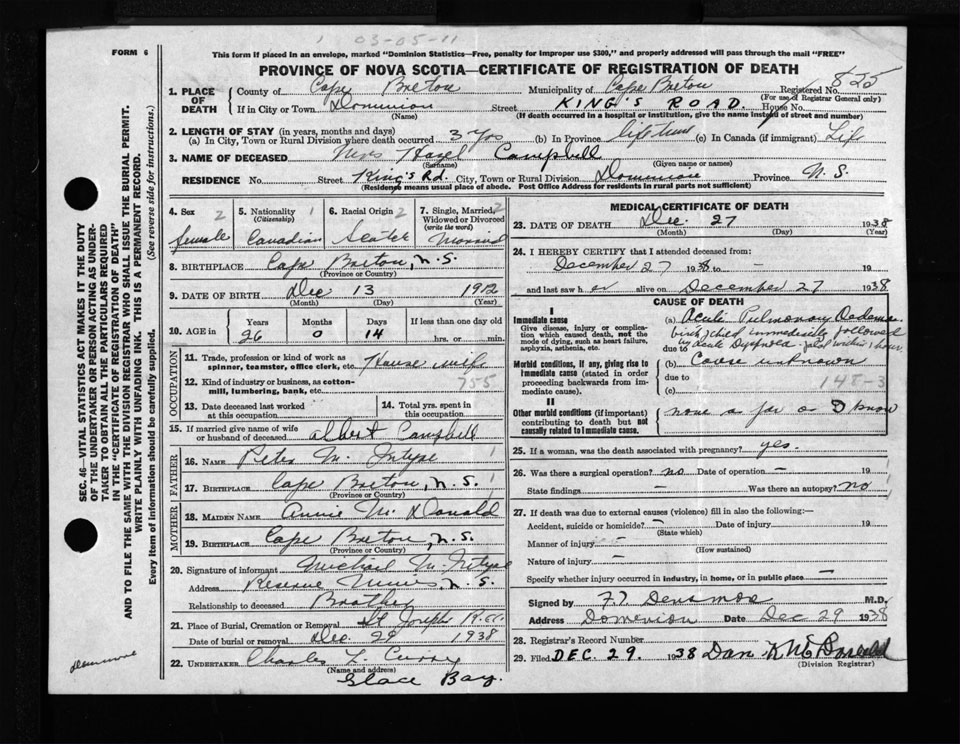 03-05-11
FORM 6
This form if placed in an envelope, marked "Dominion Statistics—Free, penalty for improper use $300," and properly addressed will pass through the mail "FREE"
PROVINCE OF NOVA SCOTIA—CERTIFICATE OF REGISTRATION OF DEATH
825
1. PLACE OF DEATH County of Cape Breton Municipality of Cape Breton Registered No.
(For use of Registrar General only)
If in City or Town Dominion Street KING'S ROAD. House No.
(Name) (If death occurred in a hospital or institution, give the name instead of street and number)
2. LENGTH OF STAY (in years, months and days)
(a) In City, Town or Rural Division where death occurred 3 yrs (b) In Province life time (c) In Canada (if immigrant) Life
3. NAME OF DECEASED Mrs Hazel Campbell
(Surname) (Given name or names)
RESIDENCE No. Street King's Rd. City, Town or Rural Division Dominion Province N.S.
(Residence means usual place of abode. Post Office Address for residents in rural parts not sufficient)
4. Sex 2 female
5. Nationality (Citizenship) 1 Canadian
6. Racial Origin 2 Scotch
7. Single, Married, Widowed or Divorced (write the word) 2 Married
8. BIRTHPLACE Cape Breton, N.S.
(Province or Country)
9. DATE OF BIRTH Dec 13 1912
(Month) (Day) (Year)
10. AGE in Years Months Days If less than one day old
26 0 14 hrs. or min.
OCCUPATION
11. Trade, profession or kind of work as spinner, teamster, office clerk, etc. House wife
12. Kind of industry or business, as cotton-mill, lumbering, bank, etc. 755
13. Date deceased last worked at this occupation
14. Total yrs. spent in this occupation
15. If married give name of wife or husband of deceased Albert Campbell
FATHER
16. NAME Peter Mc Intyre
17. BIRTHPLACE Cape Breton, N.S. 1
(Province or Country)
MOTHER
18. MAIDEN NAME Annie Mc Donald
19. BIRTHPLACE Cape Breton, N.S.
(Province or Country)
20. Signature of informant Michael Mc Intyre
Address Reserve Mines, N.S.
Relationship to deceased Brother
21. Place of Burial, Cremation or Removal St Josephs
Date of burial or removal Dec. 29 1938
22. UNDERTAKER Charles L Curry
(Name and address)
Glace Bay.
MEDICAL CERTIFICATE OF DEATH
23. DATE OF DEATH Dec. 27 1938
(Month) (Day) (Year)
24. I HEREBY CERTIFY that I attended deceased from:
December 27 1938 to — 19
and last saw her alive on December 27 1938
CAUSE OF DEATH
I
Immediate cause
Give disease, injury or complication which caused death, not the mode of dying, such as heart failure, asphyxia, asthenia, etc.
(a) Acute Pulmonary Oedema
birth child immediately followed
due to by acute Dyspnoea within 1 hour
Morbid conditions, if any, giving rise to immediate cause (stated in order proceeding backwards from immediate cause).
(b) Cause unknown
due to
148-3
(c)
II
Other morbid conditions (if important) contributing to death but not causally related to immediate cause.
none as far as I know
25. If a woman, was the death associated with pregnancy? yes.
26. Was there a surgical operation? no Date of operation — 19
State findings — Was there an autopsy? no 1
27. If death was due to external causes (violence) fill in also the following:—
Accident, suicide or homicide? — Date of injury 19
(State which)
Manner of injury —
(How sustained)
Nature of injury —
Specify whether injury occurred in industry, in home, or in public place —
Signed by F.T. Densmore M.D.
Address Dominion Date Dec 29 1938
28. Registrar's Record Number
29. Filed DEC. 29. 1938 Dan K McDonald
(Division Registrar)
SEC. 46—VITAL STATISTICS ACT MAKES IT THE DUTY
OF THE UNDERTAKER OR PERSON ACTING AS UNDER-
TAKER TO OBTAIN ALL THE PARTICULARS REQUIRED
IN THE "CERTIFICATE OF REGISTRATION OF DEATH"
AND TO FILE THE SAME WITH THE DIVISION REGISTRAR WHO SHALL ISSUE THE BURIAL PERMIT.
WRITE PLAINLY WITH UNFADING INK. THIS IS A PERMANENT RECORD.
Every item of information should be carefully supplied. (See reverse side for instructions.)
Densmore